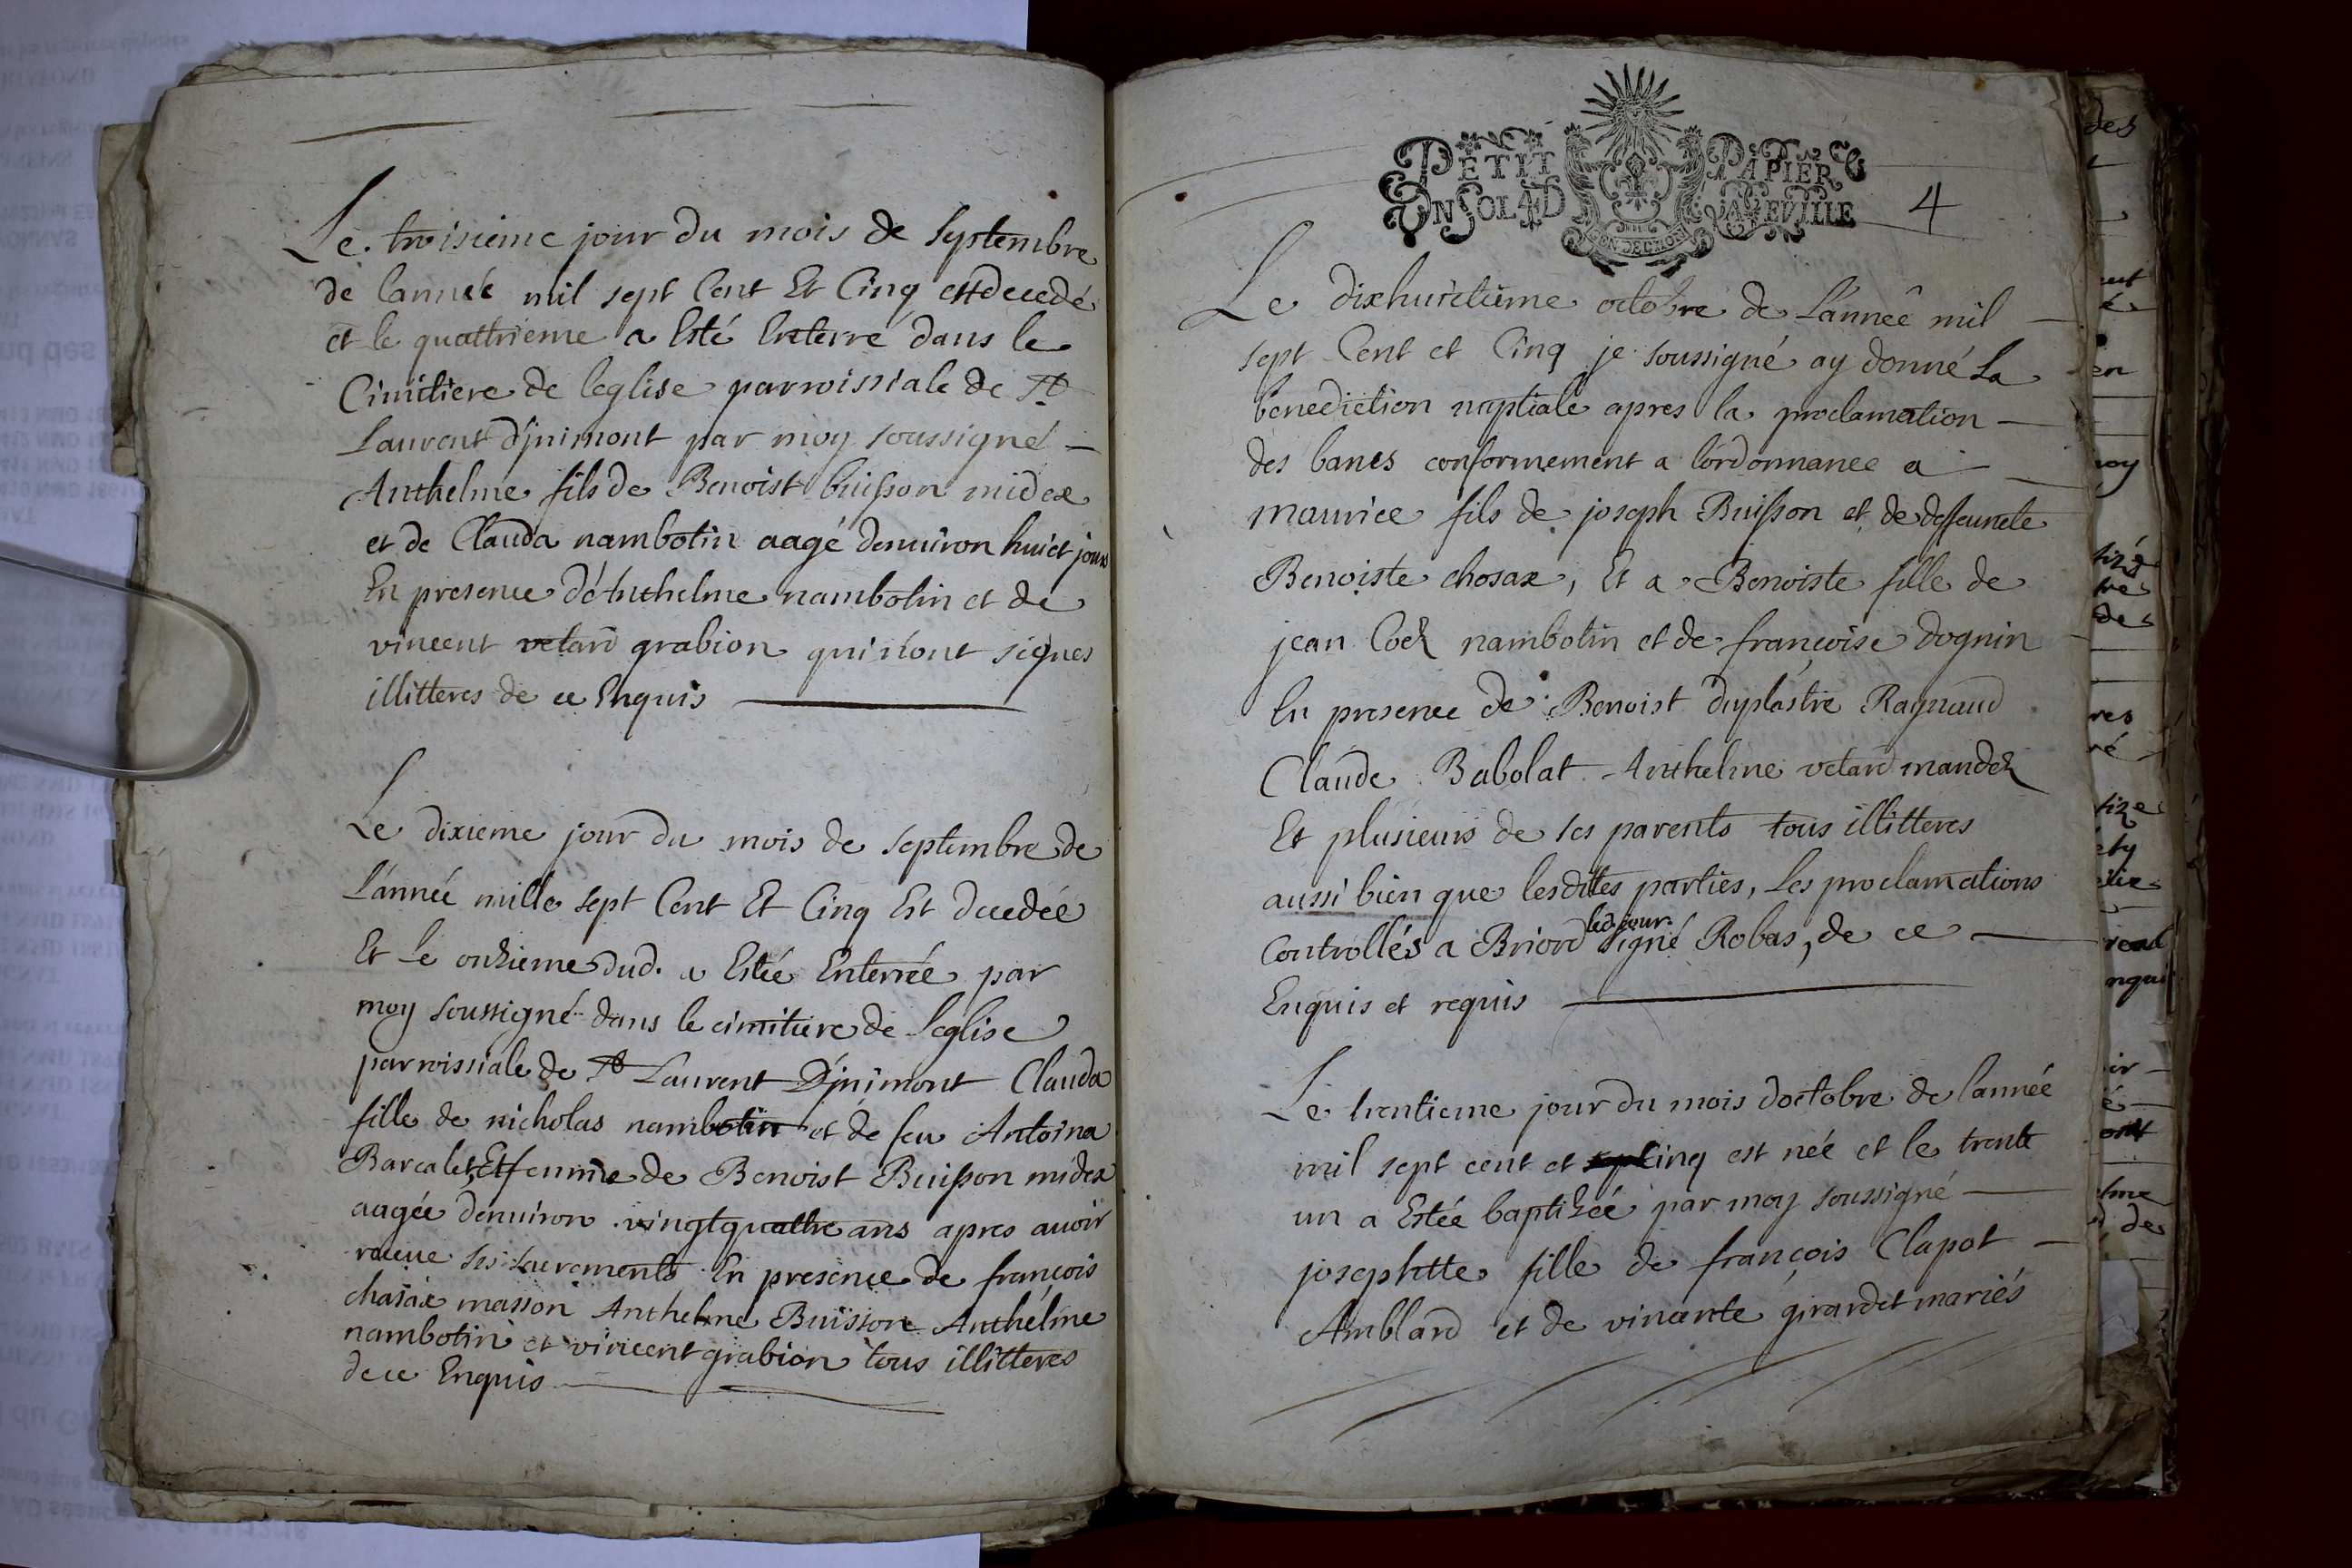 Le troisieme jour du mois de septembre
de lannée mil sept Cent Et Cinq est decedé
et le quattrieme a Esté Enterré dans le
Cimitiere de leglise parroissiale de St
Laurent d'jnimont par moy soussigné
Anthelme fils de Benoist buisson midex
et de Clauda nambotin aagé denuiron huict jours
En presence d'Anthelme nambotin et de
vincent vetard grabion qui n'ont signes
illitteres de ce Enquis
Le dixieme jour du mois de septembre de
L'année mille sept Cent Et Cinq Est decedée
Et Le onzieme dud. a Estée Enterrée par
moy soussigné dans le cimitiere de Leglise
parroissiale de St Laurent D'jnimont Clauda
fille de nicholas nambotin et de feu Antoina
Barcalet, Et femme de Benoist Buisson midex
aagée denuiron vingtquattre ans apres auoir
receue ses sacrements En presence de françois
chasax masson Anthelme Buisson Anthelme
nambotin et vincent grabion tous illitteres
de ce Enquis
PETIT PAPIER
UN SOL 4 D LA FEUILLE
4
Le dixhuictieme octobre de L'année mil
sept Cent et Cinq je soussigné ay donné La
benediction nuptiale apres la proclamation
des bancs conformement a lordonnance a
maurice fils de joseph Buisson et de deffeuncte
Benoiste chosax, Et a Benoiste fille de
jean Coch nambotin et de françoise dognin
En presence de Benoist duplastre Raynaud
Claude Babolat Anthelme vetard mandez
Et plusieurs de ses parents tous illitteres
aussi bien que lesdittes parties, Les proclamations
led. jour.
Controllés a Briord signé Robas, de ce
Enquis et requis
Le trentieme jour du mois doctobre de lannée
mil sept cent et cinq est née et le trente
un a Estée baptizée par moy soussigné
josephtte fille de françois Clapot
Amblard et de vincente girardet mariés